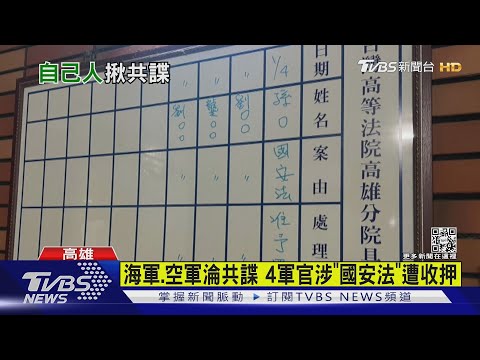 自己人揪共諜
TVBS新聞台 HD
台灣高等法院高雄分院具
日期 1/4 〃 〃 〃
姓名 孫○ 劉○○ 龔○○ 劉○○
案由 國安法 〃 〃 〃
處理 准予
更多新聞在這裡
高雄
海軍.空軍淪共諜 4軍官涉"國安法"遭收押
TVBS NEWS
掌握新聞脈動 訂閱TVBS NEWS頻道